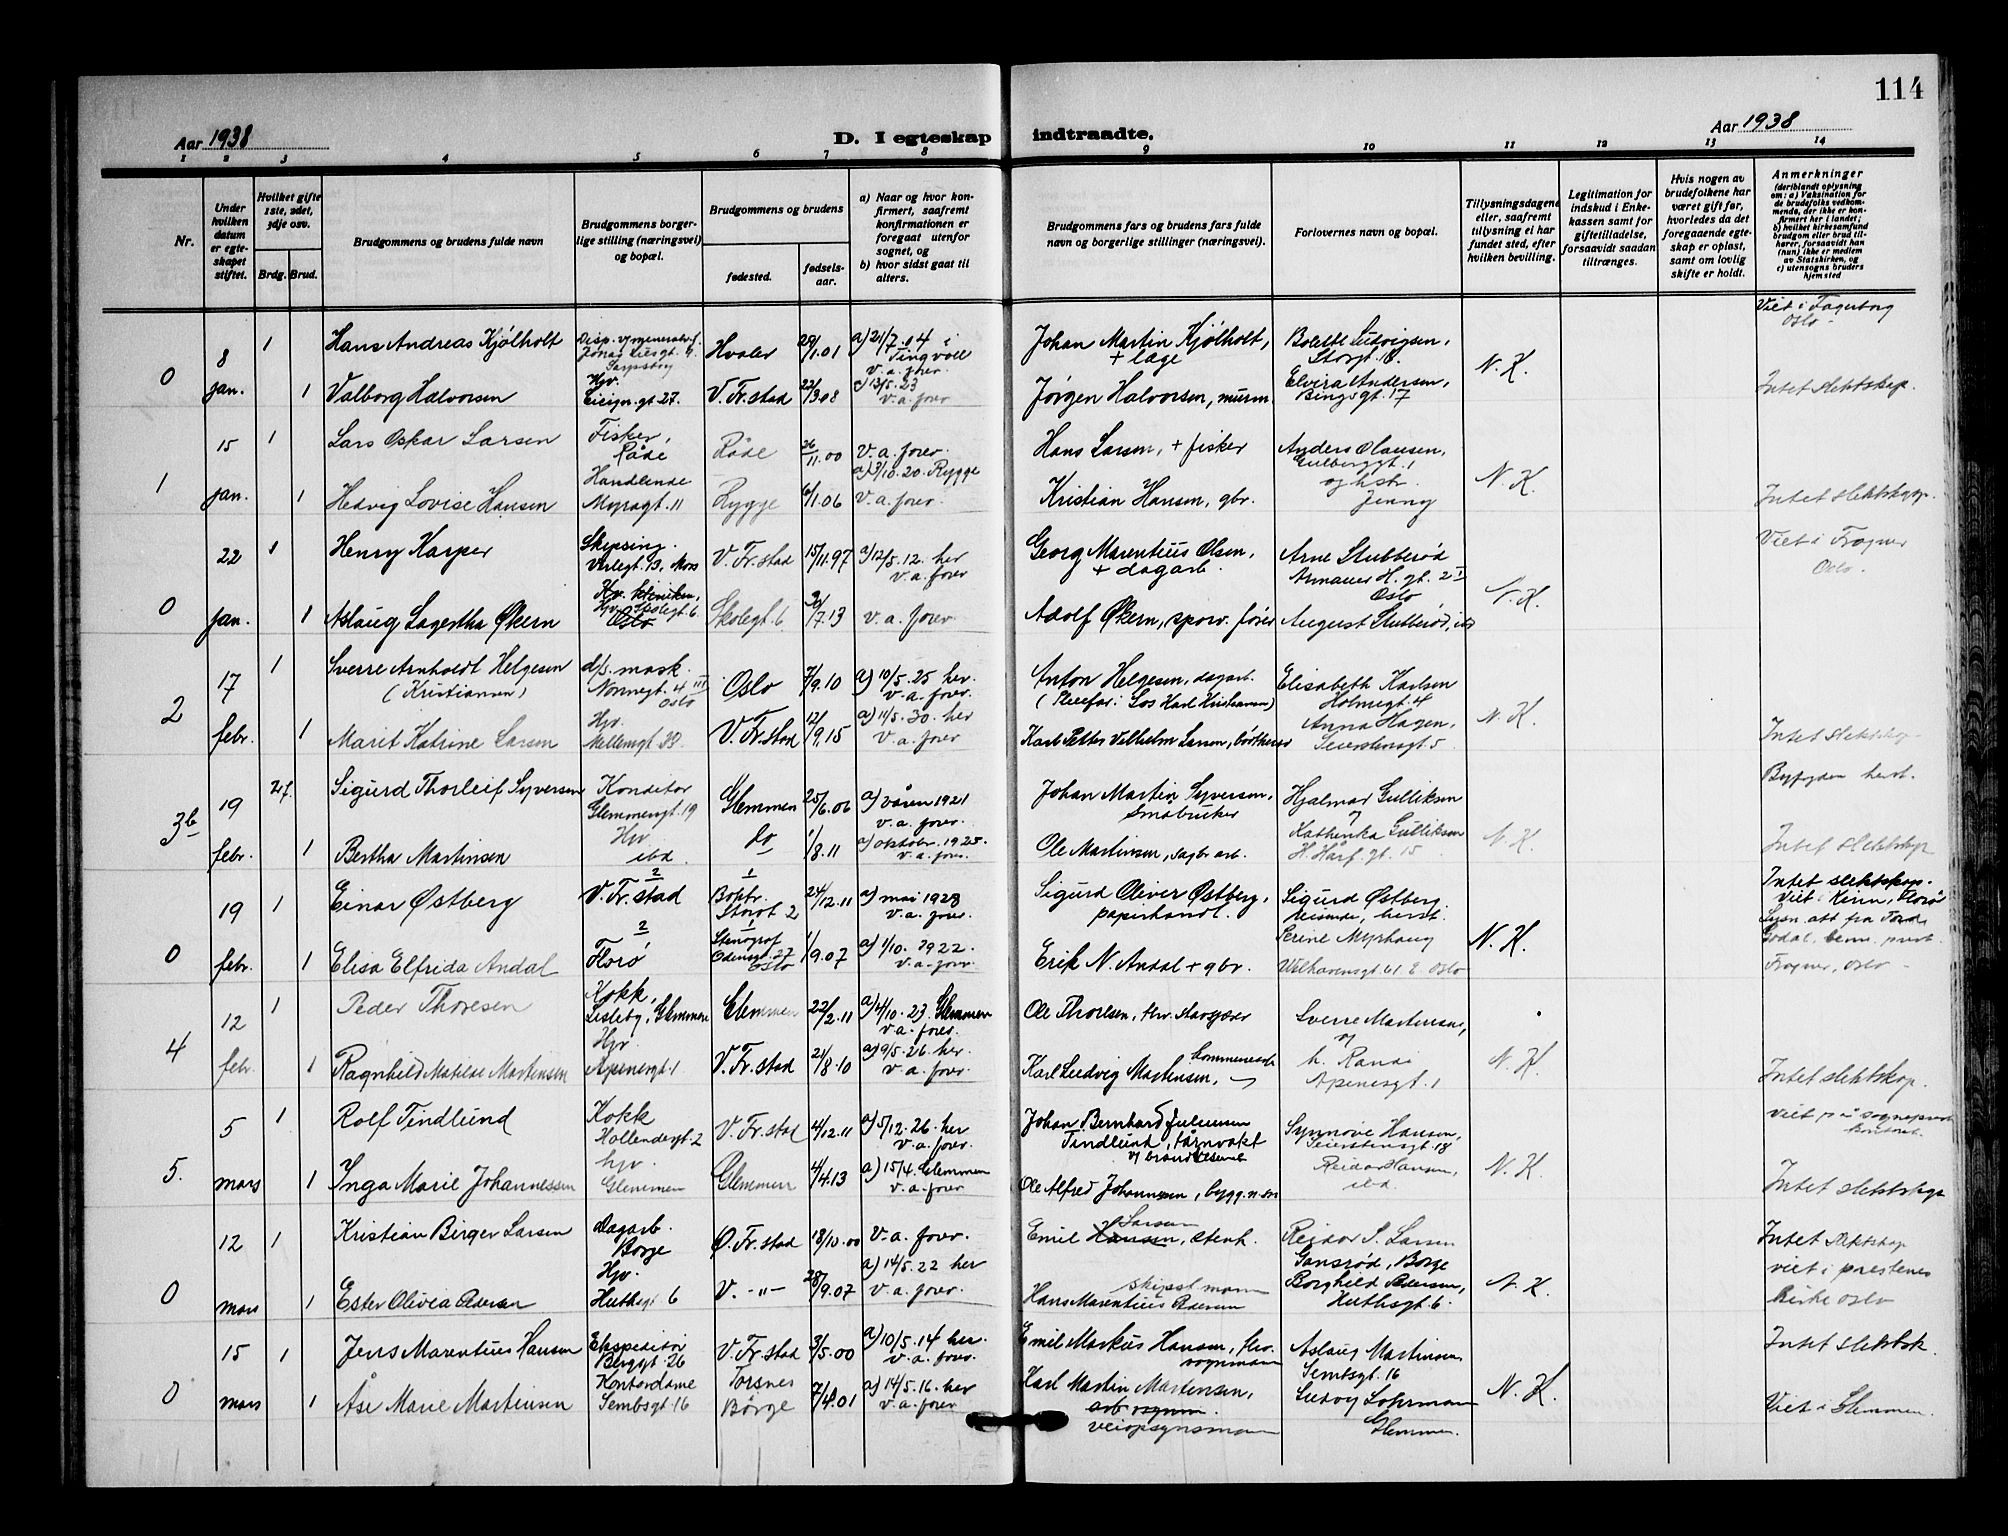 114
Aar 1938
D. I egteskap indtraadte.
Aar 1938
1 2 3 4 5 6 7 8 9 10 11 12 13 14
Nr.
Under hvilken datum er egteskapet stiftet.
Hvilket gifte 1ste, 2det, 3dje osv.
Brdg. Brud.
Brudgommens og brudens fulde navn
Brudgommens borgerlige stilling (næringsvei) og bopæl.
Brudgommens og brudens
fødested.
fødselsaar.
a) Naar og hvor konfirmert, saafremt konfirmationen er foregaat utenfor sognet, og
b) hvor sidst gaat til alters.
Brudgommens fars og brudens fars fulde navn og borgerlige stillinger (næringsvei).
Forlovernes navn og bopæl.
Tillysningsdagene eller, saafremt tillysning ei har fundet sted, efter hvilken bevilling.
Legitimation for indskud i Enkekassen samt for giftetilladelse, forsaavidt saadan tiltrænges.
Hvis nogen av brudefolkene har været gift før, hvorledes da det foregaaende egteskap er opløst, samt om lovlig skifte er holdt.
Anmerkninger
(deriblandt oplysning om: a) Vaksination for de brudefolks vedkommende, der ikke er konfirmert her i landet; b) hvilket kirkesamfund brudgom eller brud tilhører, forsaavidt han (hun) ikke er medlem av Statskirken, og c) utensogns bruders hjemsted
0 8 jan. 1 Hans Andreas Kjølholt Jonas Liesgt. Sarpsborg Hvaler 29/1.01 a) 21/7.14 i Tingvoll v. a. forer. Johan Martin Kjølholt, + læge Bolette Ludvigsen, Storgt. 18. N. K. Viet i Fagerborg Oslo
1 Valborg Halvorsen Hjv. gt. 27. V. Fr. stad 22/3.08 13/5.23 v. a. forer Jørgen Halvorsen, murm. Elvira Andersen, Bingsgt. 17 Intet slektskap.
1 15 jan. 1 Lars Oskar Larsen Fisker, Råde Råde 26/11.00 v. a. forer. Hans Larsen, + fisker Anders Olausen, Gulberggt. 1 og hstr. Jenny N. K.
1 Hedvig Lovise Hansen Handlende Myragt. 11 Rygge 6/1.06 a) 3/10.20. Rygge v. a. forer. Kristian Hansen, gbr. Intet slektskap.
0 22 jan. 1 Henry Karper Skipsing. Verlegt. 13. Moss V. Fr. stad 15/11.97 a) 12/5.12. her v. a. forer Georg Marentius Olsen, + dagarb. Arne Stubberød Armauer H. gt. 2 I Oslo N. K. Viet i Frogner Oslo.
1 Aslaug Lagertha Økern Hjv. Skolegt. 6 Oslo Skolegt. 6 7.13 v. a. forer. Adolf Økern, sporv. fører August Stubberød, ibd
2 17 febr. 1 Sverre Arnholdt Helgesen (Kristiansen) d/s. mask. Nonnegt. 4 III Oslo Oslo 7/9.10 a) 10/5.25 her. v. a. forer. Anton Helgesen, dagarb. (Pleiefar: Los Karl Kristiansen) Elisabeth Karlsen Holmegt. 4 N. K.
1 Marit Katrine Larsen Hjv. Mellemgt. 33 V. Fr. stad 12/9.15 a) 11/5.30. her v. a. forer. Karl Petter Vilhelm Larsen, Anna Hagen, Seierstensgt 5 Intet slektskap
3b 19 febr. 2g. Sigurd Thorleif Syversen Konditor Glemmengt. 19 Glemmen 25/6.06 a) våren 1921 v. a. forer. Johan Martin Syversen, småbruker Hjalmar Gulliksen N. K. Byfogden herst.
1 Bertha Martinsen Hjv ibd. do 1/8.11 a) oktobr. 1925. v. a. forer. Ole Martinsen, sagbr. arb. Kathinka Gulliksen H. Hårf. gt. 15 Intet slektskap
0 19 febr. 1 Einar Østberg V. Fr. stad 2 1 Boktr. Storgt 2 24/12.11 a) mai 1928 v. a. forer. Sigurd Oliver Østberg, papirhandl. Sigurd Østberg herst. N. K. Intet slektskap. Viet i Kinn, Florø
1 Elisa Elfrida Andal 2 Florø Stenograf Odinsgt. 27 Oslo 1/9.07 a) 1/10. 1922. v. a. forer Erik N. Andal + gbr. Serine Myrhaug Welhavensgt 61. Oslo Lysn. att fra Frogner, Oslo
4 12 febr. 1 Peder Thoresen Kokk, Lisleby, Glemmen Glemmen 22/2.11 a) 4/10.23. Glemmen v. a. forer. Ole Thoresen, Sverre Martinsen, N. K.
1 Ragnhild Matilde Martinsen Hjv. Apenesgt. 1 V. Fr. stad 21/8.10 a) 9/5.26. her. v. a. forer. Karl Ludvig Martinsen, h. Randi Apenesgt. 1 Intet slektskap.
5. 5 mars 1 Rolf Tindlund Kokk Hollendergt. 2 V. Fr. stad 4/12.11 a) 5/12.26. her v. a. forer. Johan Bernhard Juliussen Tindlund, tårnvakt v/ brandvesenet Synnøve Hansen, Seierstensgt. 18 N. K.
1 Inga Marie Johannessen hjv. Glemmen Glemmen 4/4.13 a) 15/4. Glemmen v. a. forer Ole Alfred Johannessen, bygg. m. Reidar Hansen, ibd. Intet slektskap
0 12 mars 1 Kristian Birger Larsen Dagarb. Borge Ø. Fr. stad 18/10.00 v. a. forer. Emil Hansen Larsen, stenh. Reidar S. Larsen Gansrød, Borge N. K. Intet slektskap viet i prestenes kirke Oslo
1 Ester Olivia Pedersen Hjv. Huthsgt. 6 V. -"- 28/9.07 a) 14/5.22 her v. a. forer. Hans Marentius Pedersen skipst. mann Borghild Pedersen, Huthsgt. 6.
0 15 mars 1 Jens Marentius Hansen Ekspeditør Bergsgt. 26 V. Fr. stad 3/5.00 a) 10/5.14 her. v. a. forer. Emil Markus Hansen, Aslaug Martinsen, Sembsgt. 16 N. K. Intet slektsk.
1 Åse Marie Martinsen Kontordame Sembsgt. 16 Torsnes Borge 7/4.01 a) 14/5.16. her v. a. forer Karl Martin Martinsen, veiopsynsmann Ludvig Lohrmann Glemmen. Viet i Glemmen.